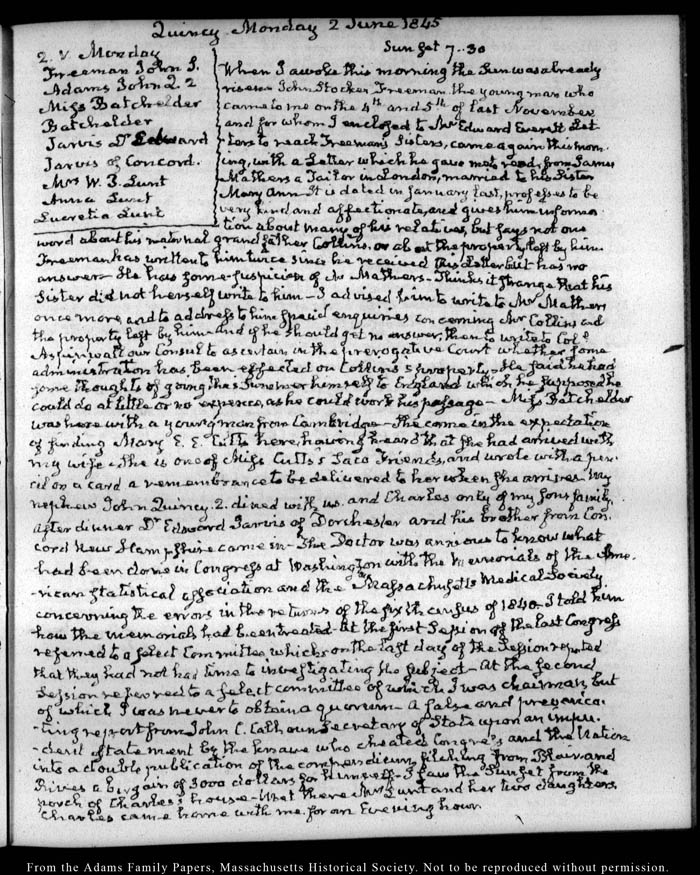 Quincy Monday 2 June 1845
2. V. Monday
Freeman John S.
Adams John Q. 2
Miss Batchelder
Batchelder
Jarvis Dr Edward
Jarvis of Concord.
Mrs W. P. Lunt
Anna Lunt
Lucretia Lunt
Sun set 7..30
When I awoke this morning the Sun was already
risen John Stocker Freeman the young man who
came to me on the 4th and 5th of last November
and for whom I enclosed to Mr Edward Everett Let-
ters to reach Freeman's Sisters, came again this morn-
ing, with a Letter which he gave me to read, from James
Mathers a Tailor in London, married to his Sister
Mary Ann. It is dated in January last, professes to be
very kind and affectionate, and gives him informa-
tion about many of his relatives, but says not one
word about his maternal grandfather Collins, or about the property left by him
Freeman has written to him twice since he received this Letter but has no
answer. He has some suspicion of Mr Mathers - Thinks it strange that his
Sister did not herself write to him - I advised him to write to Mr Mathers
once more, and to address to him special enquiries concerning Mr Collins and
the property left by him and if he should get no answer, then to write to Coll
Aspinwall our Consul to ascertain in the prerogative Court whether some
administration has been effected on Collins's property - He said he had
some thoughts of going this Summer himself to England which he supposed he
could do at little or no expence, as he could work his passage - Miss Batchelder
was here with a young man from Cambridge - She came in the expectation
of finding Mary E. E. Cutts here, having heard that she had arrived with
my wife - She is one of Miss Cutts's Saco Friends, and wrote with a pen-
cil on a card a remembrance to be delivered to her when she arrives. My
nephew John Quincy. 2. dined with us. and Charles only of my sons family.
After dinner Dr Edward Jarvis of Dorchester and his brother from Con-
cord New Hampshire came in - The Doctor was anxious to know what
had been done in Congress at Washington with the Memorials of the Ame-
rican Statistical association and the Massachusetts Medical Society
concerning the errors in the returns of the sixth census of 1840. I told him
how the memorials had been treated - At the first Session of the last Congress
referred to a select Committee which on the last day of the Session reported
that they had not had time to investigating the subject - At the second
Session referred to a select committee of which I was chairman, but
of which I was never to obtain a quorum - A false and prevarica-
-ting report from John C. Calhoun Secretary of State upon an impu-
-dent statement by the knave who cheated Congress and the Nation
into a double publication of the compendium, filching from Blair and
Rives a bargain of 3000 dollars for himself - I saw the Sunset from the
porch of Charles's house - Met there Mrs Lunt and her two daughters.
Charles came home with me for an Evening hour.
From the Adams Family Papers, Massachusetts Historical Society. Not to be reproduced without permission.